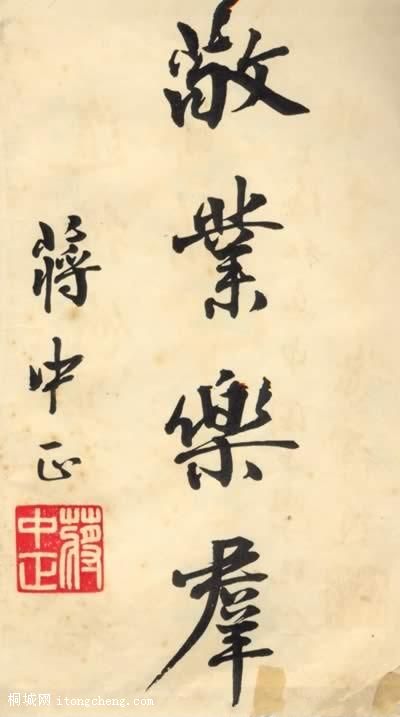 敬業樂羣
蔣中正
蔣中正
桐城网 itongcheng.com